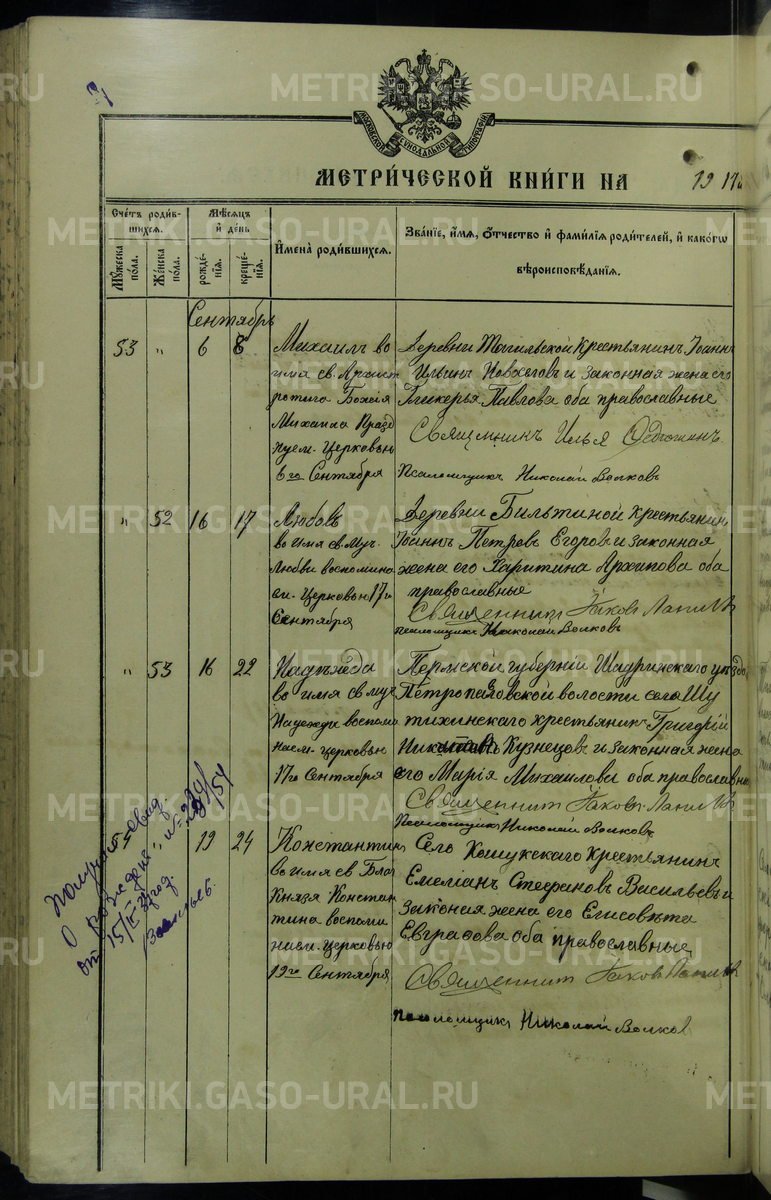 МОСКОВСКОЙ СѴНОДАЛЬНОЙ ТИПОГРАФІИ
МЕТРИ́ЧЕСКОЙ КНИ́ГИ НА 1917
Сче́тъ роди́вшихсѧ.
Мꙋ́жеска по́ла.
Же́нска по́ла.
Мѣ́сѧцъ и҆ де́нь
рожде́нїѧ.
креще́нїѧ.
И҆мена̀ роди́вшихсѧ.
Зва́нїе, и҆́мѧ, ѻ҆́тчество и҆ фами́лїѧ роди́телей, и҆ како́гѡ
вѣроисповѣ́данїѧ.
Сентябрь
53 " 6 8
Михаилъ во
имя св. Архист
ратига Божія
Михаила Празд
нуем. Церковью
6го Сентября
Деревни Тагильской Крестьянинъ Іоаннъ
Ильинъ и законная жена его
Гликерья Павлова оба православные
Священникъ Илья
Псаломщикъ Николай Волковъ
" 52 16 17
Любовь
во имя св. Муч.
Любви воспомина
ем. Церковью 17го
Сентября
Деревни Бильтиной крестьянинъ
Іоаннъ Петровъ Егоровъ и законная
жена его Харитина Архипова оба
православные
Священникъ Іаковъ
псаломщикъ Николай Волковъ
" 53 16 22
Надѣжда
во имя св муч
Надежды воспоми
наем. церковью
17го Сентября
Пермской губерніи Шадринскаго уѣзда
Петропавловской волости села Шу
тихинскаго крестьянинъ Григорій
Кузнецовъ и законная жена
его Марія Михаилова оба православны
Священникъ Іаковъ
Псаломщикъ Николай Волковъ
54 19 24
Константинъ
во имя св Благ
Князя Констан
тина воспоми
наем. Церковью
19го Сентября
Село Кошукскаго Крестьянинъ
Емелїанъ Стефановъ Васильевъ и
законая жена его Елисовѣта
оба православные
Священникъ Іаковъ
псаломщикъ Николай Волков
Получает свид
О рождении
от 15/II
METRIKI.GASO-URAL.RU